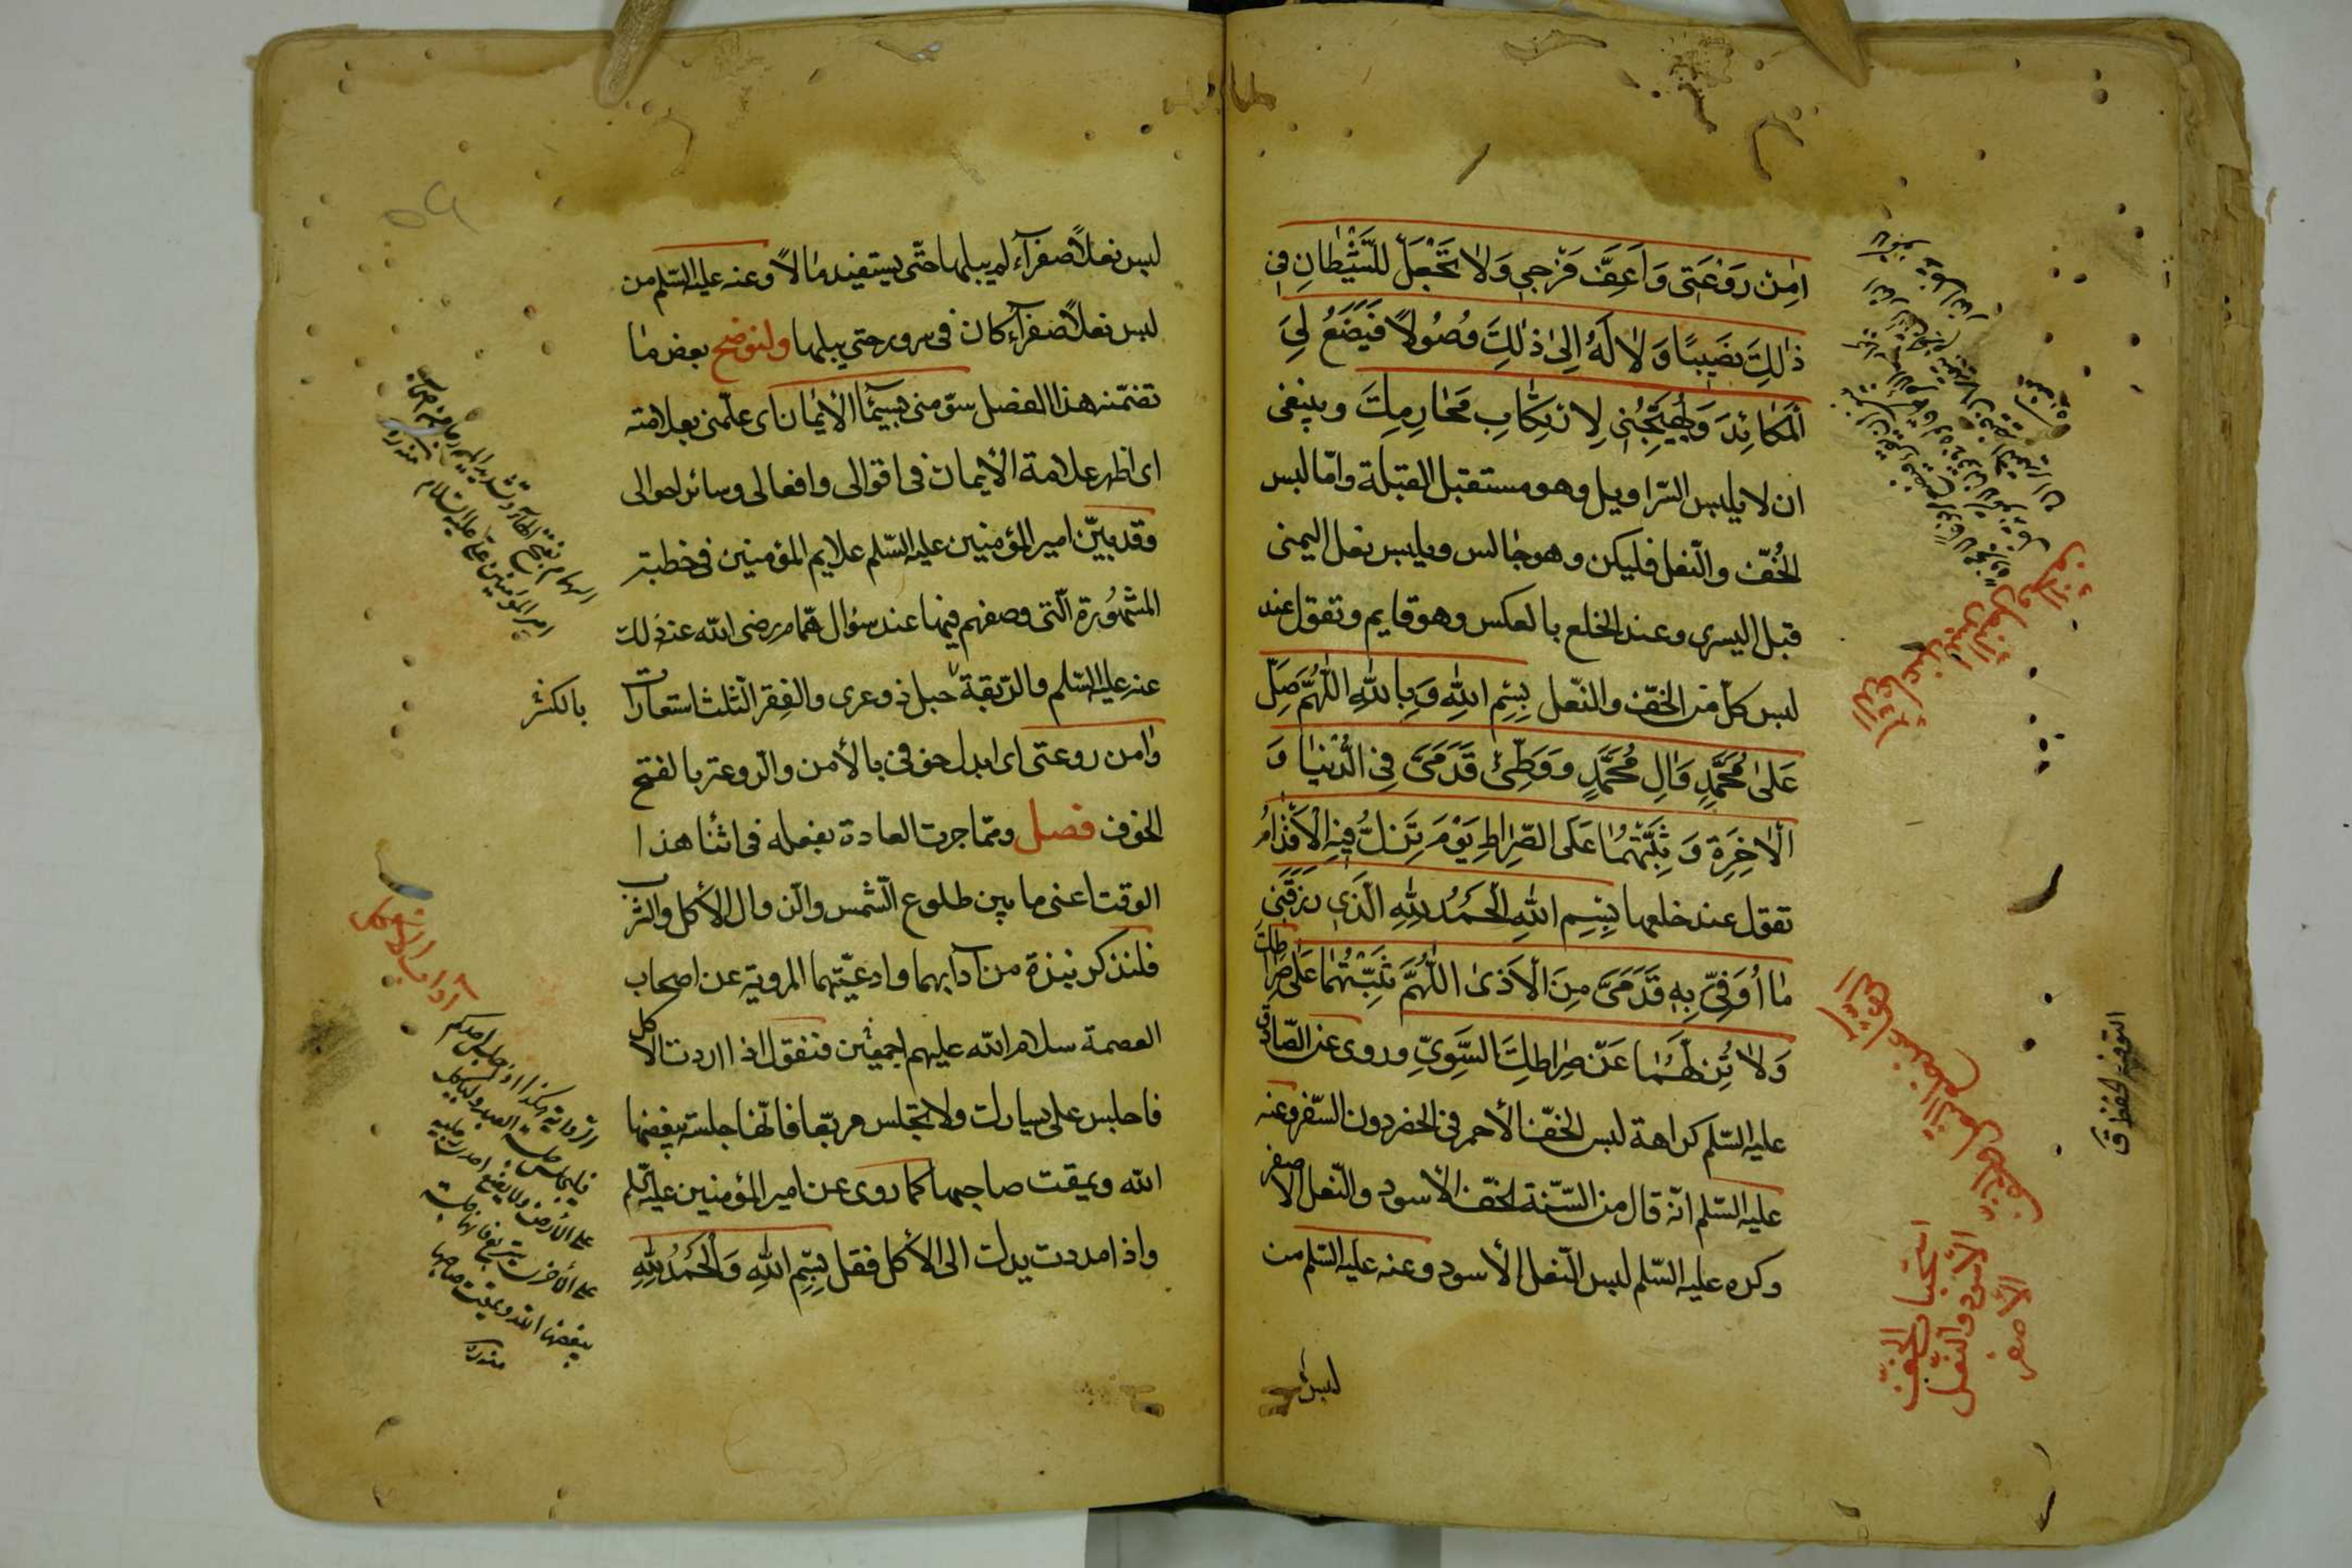 اٰمِنْ رَوْعَتى وَاَعِفَّ فَرْجى وَلاٰ تَجْعَلْ لِلشَّيْطٰانِ فى
ذٰلِكَ نَصيبًا وَلاٰ لَهُ اِلىٰ ذٰلِكَ وُصُولاً فَيَضَعَ لِىَ
اَلْمَكٰائِدَ وَيُهَيِّجُنى لِارْتِكٰابِ مَحٰارِمِكَ وينبغى
ان لا يلبس السّراويل وهو مستقبل القبلة وامّا لبس
الخُفّ والنّعل فليكن وهو جالس ويلبس نعل اليمنى
قبل اليسرى وعند الخلع بالعكس وهو قايم وتقول عند
لبس كلّ من الخفّ والنّعل بِسْمِ اللهِ وَبِاللهِ اَللّٰهُمَّ صَلِّ
عَلىٰ مُحَمَّدٍ وَاٰلِ مُحَمَّدٍ وَوَطِّئْ قَدَمَىَّ فِى الدُّنْيٰا وَ
اَلْاٰخِرَةِ وَثَبِّتْهُمٰا عَلَى الصِّرٰاطِ يَوْمَ تَزِلُّ فيهِ الْاَقْدٰامُ
تقول عند خلعها بِسْمِ اللهِ الْحَمْدُ لِلّٰهِ الَّذى رَزَقَنى
مٰا اُوَقّى بِهِ قَدَمَىَّ مِنَ الْاَذىٰ اَللّٰهُمَّ ثَبِّتْهُمٰا عَلىٰ صِرٰاطِكَ
وَلاٰ تُزِلَّهُمٰا عَنْ صِرٰاطِكَ السَّوِىِّ وروى عن الصّادق
عليه السّلم كراهة لبس الخفّ الأحمر فى الحضر دون السّفر وعنه
عليه السّلم انّه قال من السّنّة الخفّ الأسود والنّعل الأصفر
وكره عليه السّلم لبس النّعل الأسود وعنه عليه السّلم من
لبس
الدعاء عند لبس النعل والخف
استحباب الخفّ
الأسود والنعل
الأصفر
لبس نعلاً صفرآء لم يبلها حتّى يستفيد مالاً وعنه عليه السّلم من
لبس نعلاً صفرآء كان فى سرور حتى يبلها ولنوضح بعض ما
تضمّنه هذا الفصل سوّمنى بسيمآء الأيمان اى علّمنى بعلامته
اى اظهر علامة الأيمان فى اقوالى وافعالى وسائر احوالى
وقد بيّن امير المؤمنين عليه السّلم علايم المؤمنين فى خطبته
المشهُورة الّتى وصفهم فيها عند سؤال همّام رضى الله عنه ذلك
عنه عليه السّلم والرّبقة حبل ذو عرى والفِقر الثّلث استعارات
بالكسر
وٰامن روعتى اى ابدل خوفى بالأمن والرّوعة بالفتح
الخوف فصل وممّا جرت العادة بفعله فى اثنا هذا
الوقت اعنى ما بين طلوع الشّمس والزوال الأكل والشّرب
فلنذكر نبذة من آدابهما وادعيّتهما المروية عن اصحاب
العصمة سلام الله عليهم اجمعين فنقول اذا اردت الأكل
فاجلس على يسارك ولا تجلس مربّعا فانّها جلسة يبغضها
الله ويمقت صاحبها كما روى عن امير المؤمنين عليه السّلم
واذا مددت يدك الى الأكل فقل بِسْمِ اللهِ وَالْحَمْدُ لِلّٰهِ
آداب الأكل
الرواية هكذا اذا جلس احدكم
فليجلس جلسة العبد وليأكل
على الأرض ولا يضع احدى رجليه
على الأخرى يتربع فانها جلسة
يبغضها الله ويمقت صاحبها